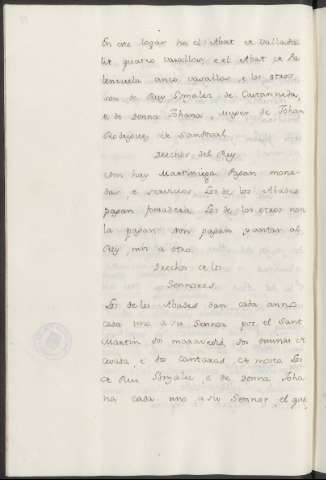 En este logar ha el Abat de Vallado
lit quatro vasallos, e el Abat de Pa
lenzuela cinco vasallos, e los otros
son de Ruy Gonzalez de Castanneda,
e de donna Johana, muger de Johan
Rodriguez de Sandoval.
Derechos del Rey
Non hay Martiniega. Pagan mone
das, e servicios. Los de los Abades
pagan fonsadera. Los de los otros non
la pagan. Non pagan yantar al
Rey, nin a otro.
Derechos de los
Sennores.
Los de los Abades dan cada anno
cada uno a su Sennor por el Sant
Martin dos maravedis, dos eminas de
cevada, e dos cantaras de mosto. Los
de Rui Gonzalez, e de donna Joha
na cada uno a su Sennor, el que